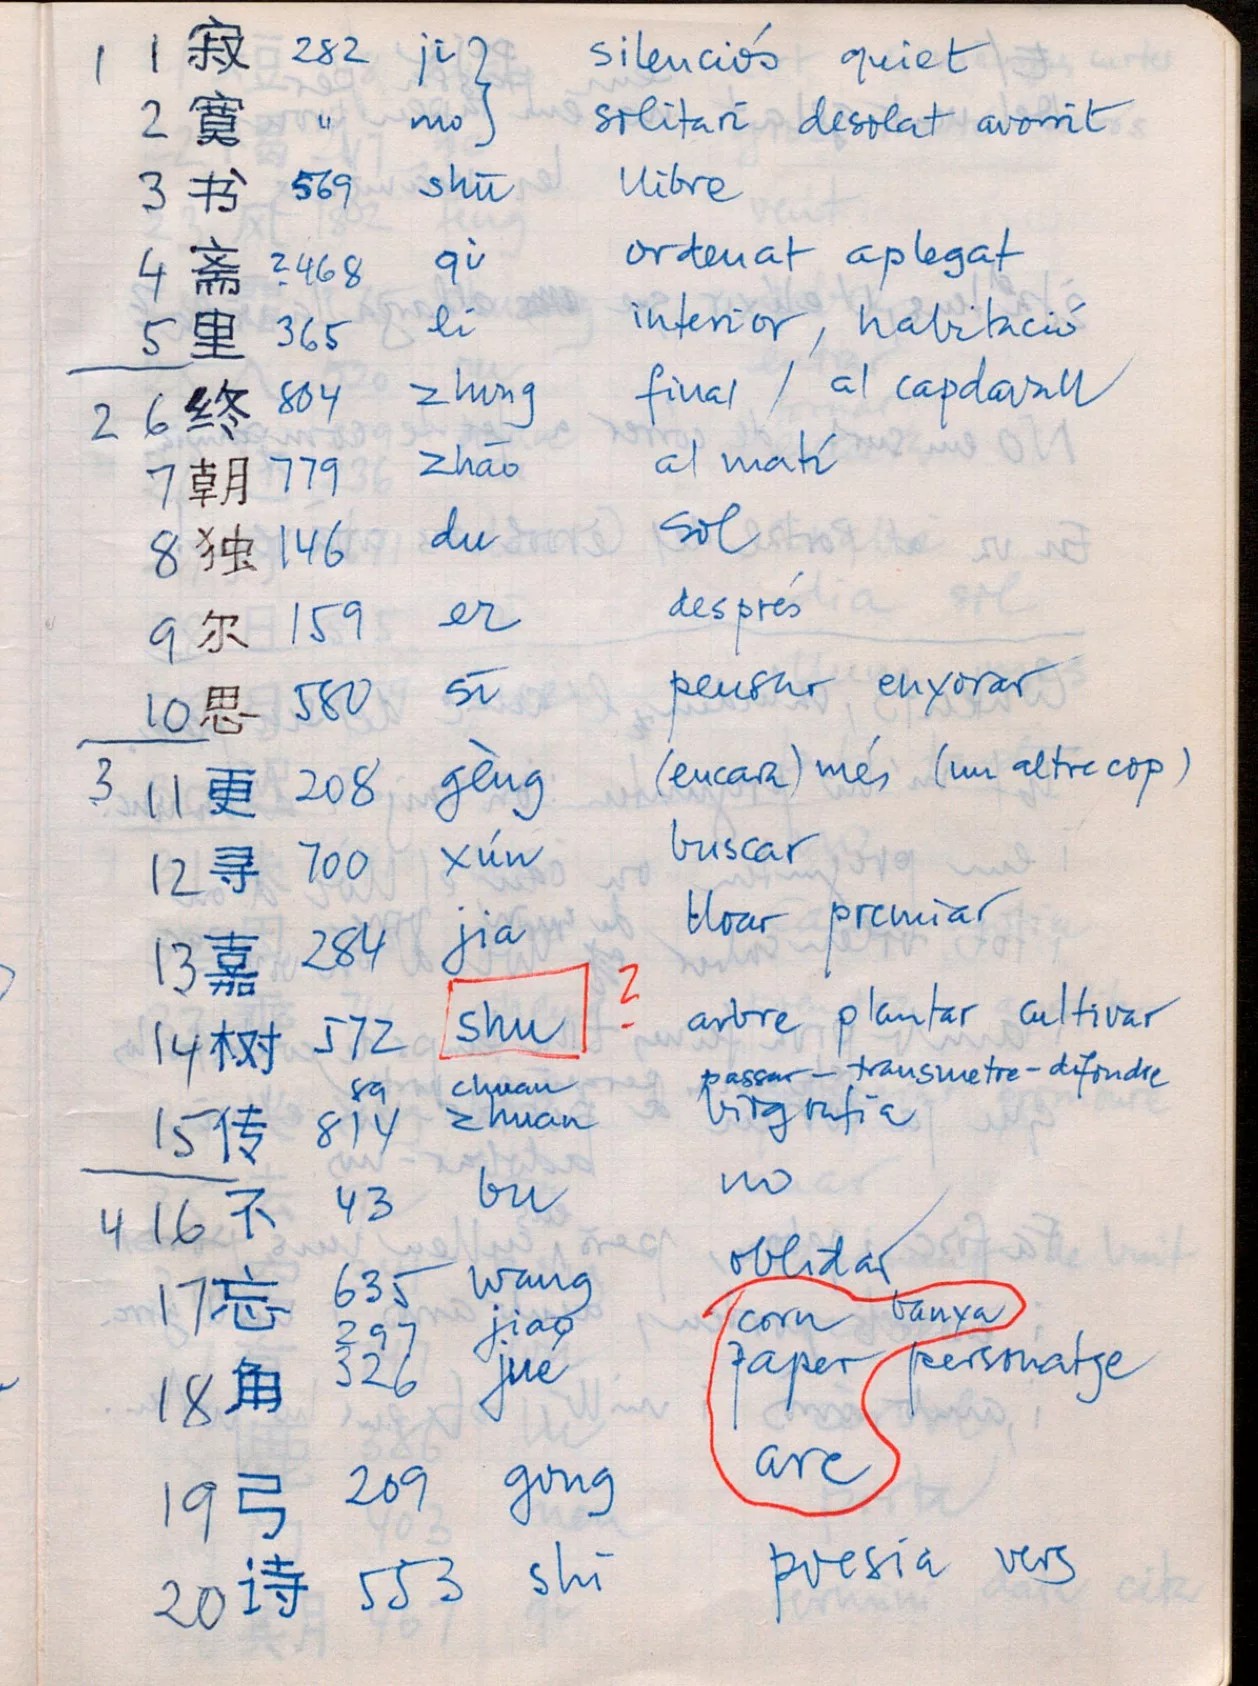 1 1 寂 282 jì } silenciós quiet
2 寞 " mo } solitari desolat avorrit
3 书 569 shū llibre
4 斋 ?468 qì ordenat aplegat
5 里 365 li interior, habitació
2 6 終 804 zhung final / al capdavall
7 朝 779 zhāo al matí
8 独 146 du sol
9 尔 159 er després
10 思 580 sī pensar enyorar
3 11 更 208 gèng (encara) més (un altre cop)
12 寻 700 xún buscar
13 嘉 284 jia lloar premiar
14 树 572 shu ? arbre plantar cultivar
sa chuan passar - transmetre - difondre
15 传 814 zhuan biografia
4 16 不 43 bu no
17 忘 635 wang oblidar
297 jiao corn banya
18 角 326 jué paper personatge
19 弓 209 gong arc
20 诗 553 shī poesia vers